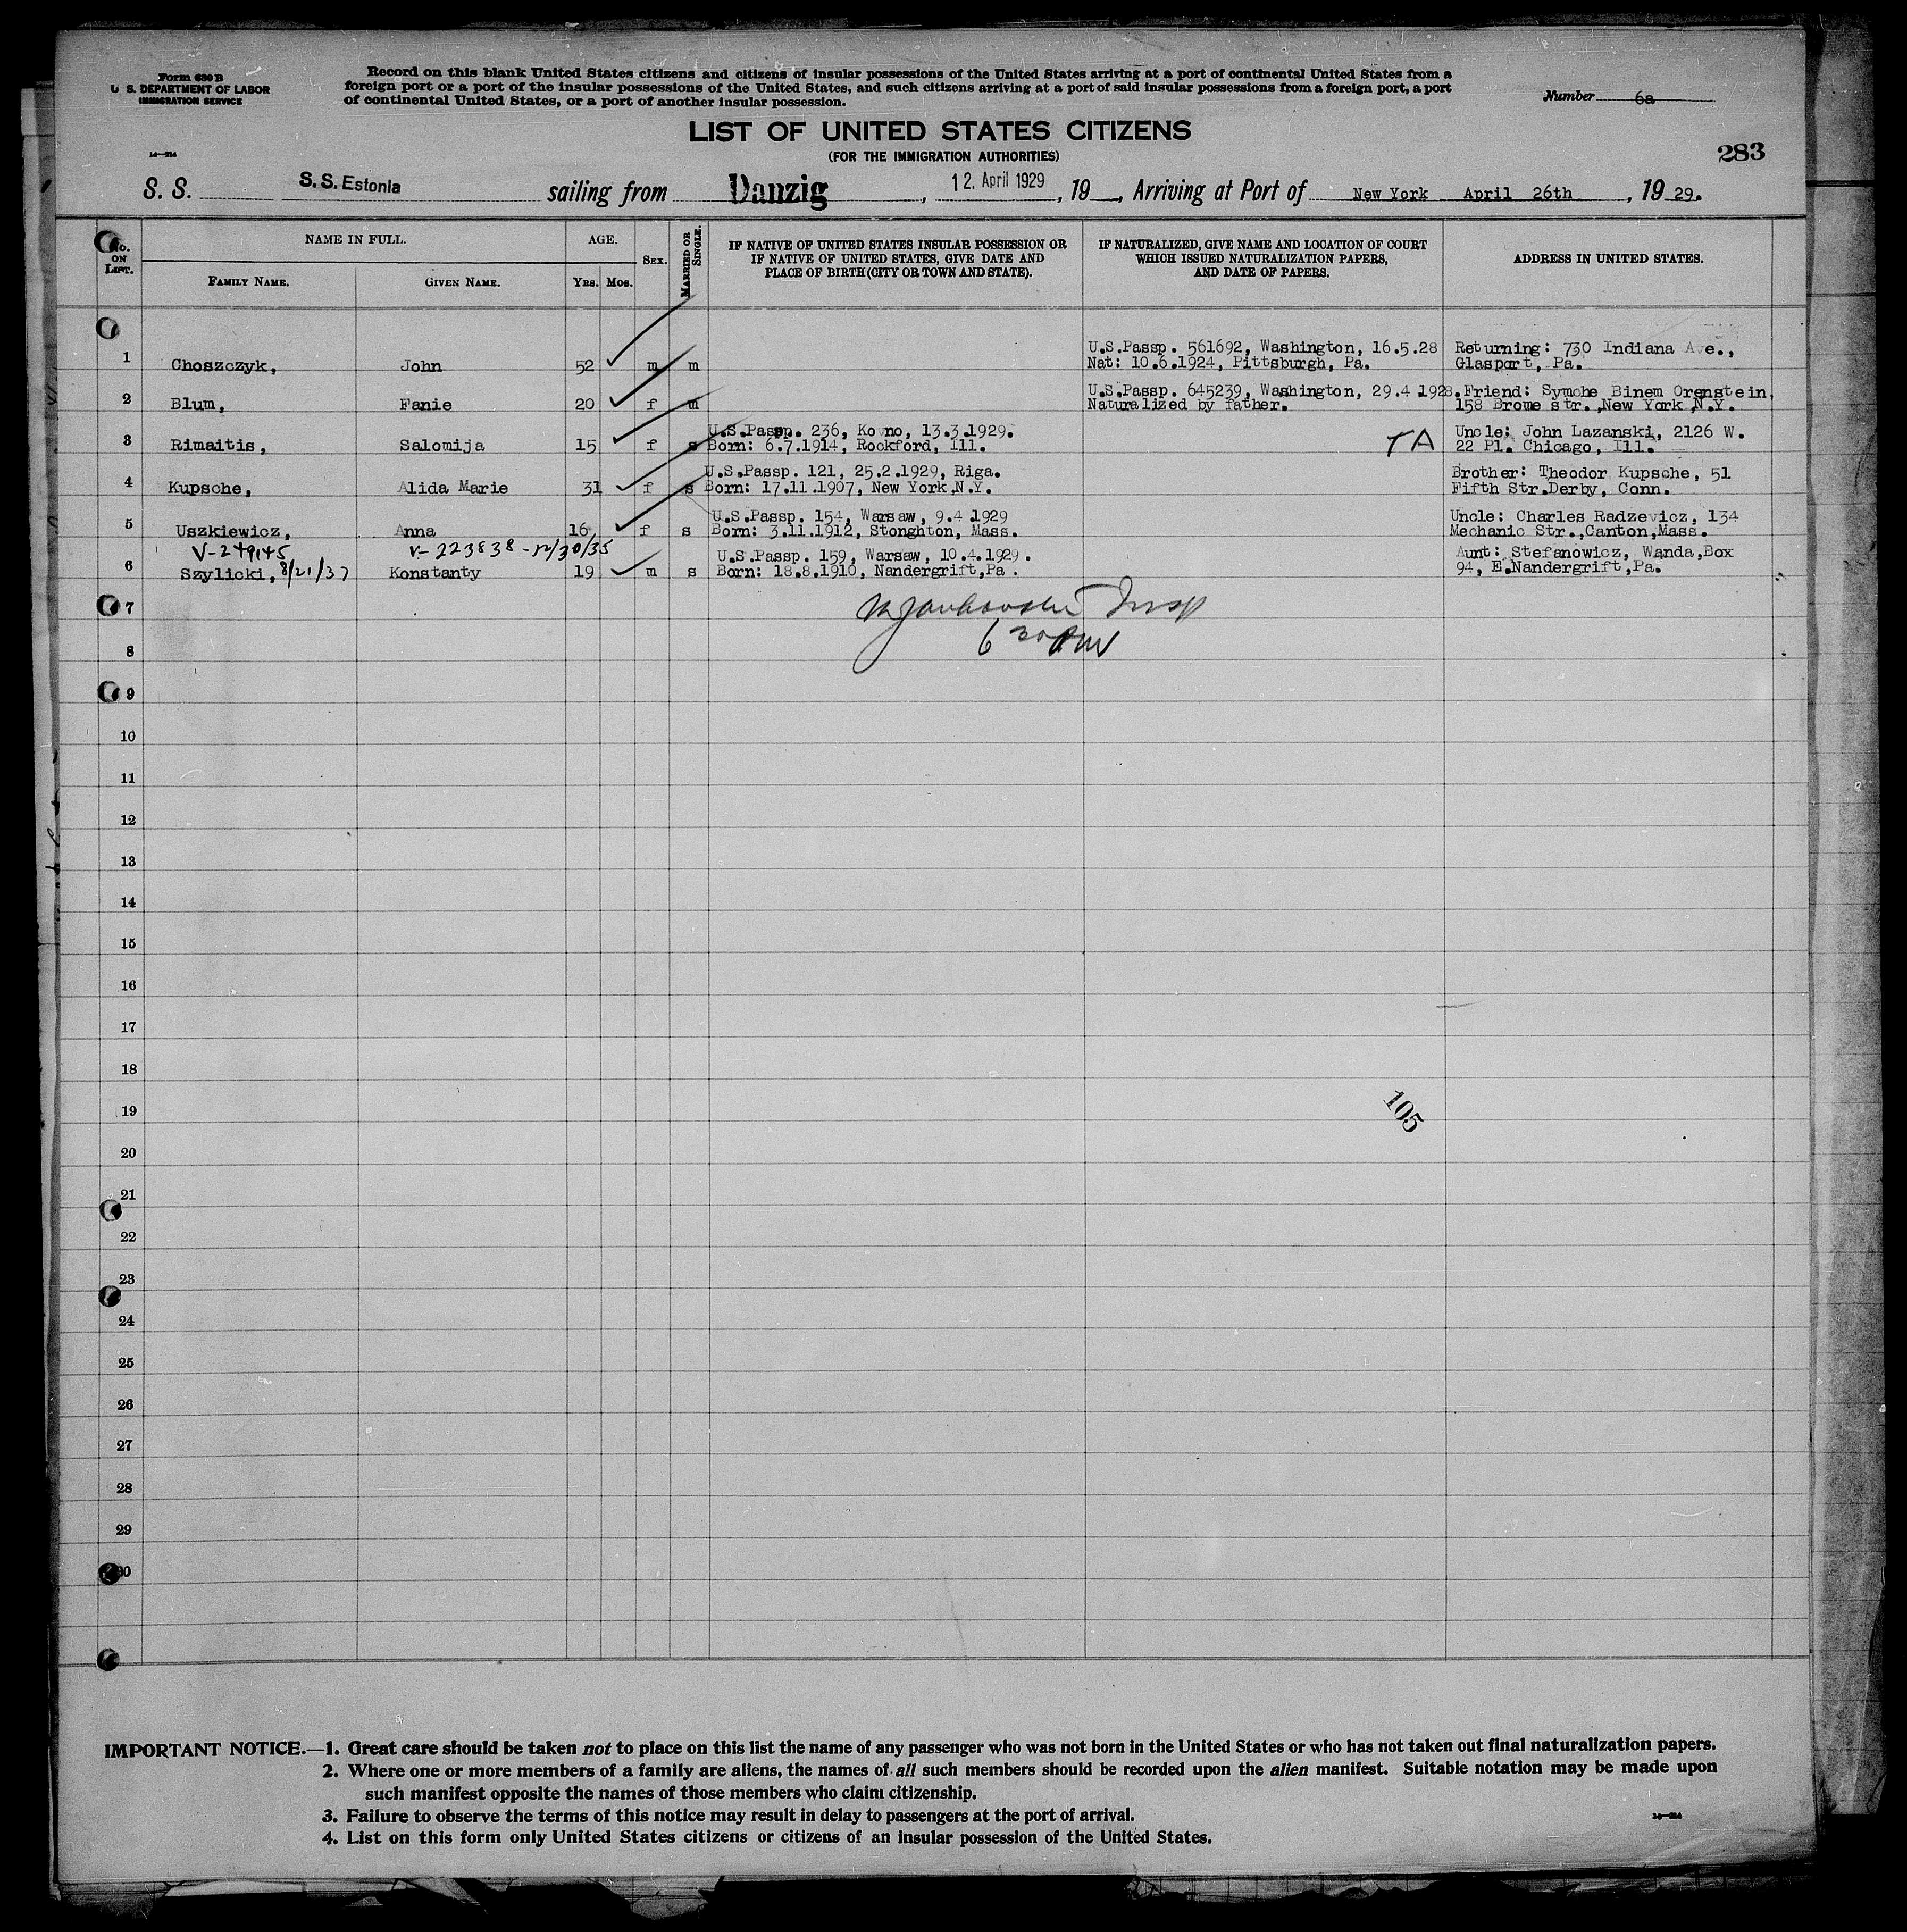 Form 630 B
U. S. DEPARTMENT OF LABOR
IMMIGRATION SERVICE
Record on this blank United States citizens and citizens of insular possessions of the United States arriving at a port of continental United States from a
foreign port or a port of the insular possessions of the United States, and such citizens arriving at a port of said insular possessions from a foreign port, a port
of continental United States, or a port of another insular possession.
Number 6a
LIST OF UNITED STATES CITIZENS
(FOR THE IMMIGRATION AUTHORITIES)
283
14—214
S. S. S.S. Estonia sailing from Danzig, 12. April 1929, 19 , Arriving at Port of New York April 26th, 19 29.
No. ON LIST.
NAME IN FULL.
FAMILY NAME.
GIVEN NAME.
AGE.
YRS. MOS.
SEX.
MARRIED OR SINGLE.
IF NATIVE OF UNITED STATES INSULAR POSSESSION OR
IF NATIVE OF UNITED STATES, GIVE DATE AND
PLACE OF BIRTH (CITY OR TOWN AND STATE).
IF NATURALIZED, GIVE NAME AND LOCATION OF COURT
WHICH ISSUED NATURALIZATION PAPERS,
AND DATE OF PAPERS.
ADDRESS IN UNITED STATES.
U.S.Passp. 561692, Washington, 16.5.28 Returning: 730 Indiana Ave.,
1 Choszczyk, John 52 m m Nat: 10.6.1924, Pittsburgh, Pa. Glasport, Pa.
U.S.Passp. 645239, Washington, 29.4.1928. Friend: Symche Binem Orenstein,
2 Blum, Fanie 20 f m Naturalized by father. 158 Brome str.,New York,N.Y.
U.S.Passp. 236, Kowno, 13.3.1929. Uncle: John Lazanski, 2126 W.
3 Rimaitis, Salomija 15 f s Born: 6.7.1914, Rockford, Ill. TA 22 Pl. Chicago, Ill.
U.S.Passp. 121, 25.2.1929, Riga. Brother: Theodor Kupsche, 51
4 Kupsche, Alida Marie 31 f s Born: 17.11.1907, New York,N.Y. Fifth Str.Derby, Conn.
U.S.Passp. 154, Warsaw, 9.4.1929 Uncle: Charles Radzevicz, 134
5 Uszkiewicz, Anna 16 f s Born: 3.11.1912, Stonghton, Mass. Mechanic Str.,Canton,Mass.
V-279145 V-223838-12/30/35 U.S.Passp. 159, Warsaw, 10.4.1929. Aunt: Stefanowicz, Wanda,Box
6 Szylicki, 8/21/37 Konstanty 19 m s Born: 18.8.1910, Nandergrift,Pa. 94, E.Nandergrift,Pa.
7 Insp
8 6 30 PM
9
10
11
12
13
14
15
16
17
18
105
19
20
21
22
23
24
25
26
27
28
29
30
IMPORTANT NOTICE.—1. Great care should be taken not to place on this list the name of any passenger who was not born in the United States or who has not taken out final naturalization papers.
2. Where one or more members of a family are aliens, the names of all such members should be recorded upon the alien manifest. Suitable notation may be made upon
such manifest opposite the names of those members who claim citizenship.
3. Failure to observe the terms of this notice may result in delay to passengers at the port of arrival.
14—214
4. List on this form only United States citizens or citizens of an insular possession of the United States.